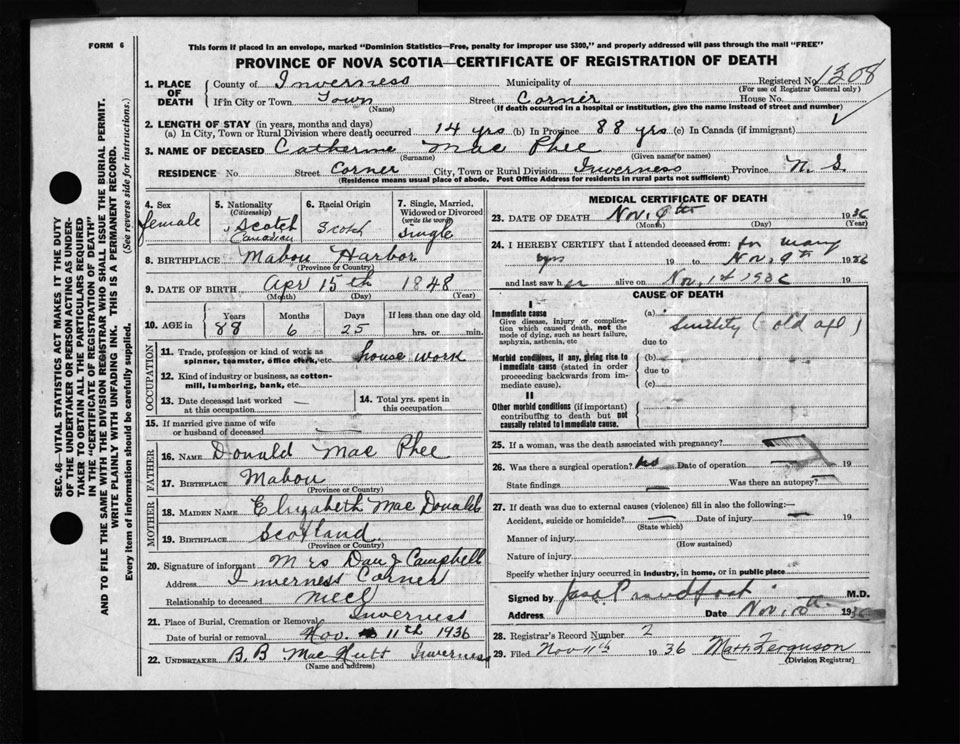 FORM 6
This form if placed in an envelope, marked "Dominion Statistics—Free, penalty for improper use $300," and properly addressed will pass through the mail "FREE"
PROVINCE OF NOVA SCOTIA—CERTIFICATE OF REGISTRATION OF DEATH
SEC. 46—VITAL STATISTICS ACT MAKES IT THE DUTY
OF THE UNDERTAKER OR PERSON ACTING AS UNDER-
TAKER TO OBTAIN ALL THE PARTICULARS REQUIRED
IN THE "CERTIFICATE OF REGISTRATION OF DEATH"
AND TO FILE THE SAME WITH THE DIVISION REGISTRAR WHO SHALL ISSUE THE BURIAL PERMIT.
WRITE PLAINLY WITH UNFADING INK. THIS IS A PERMANENT RECORD.
Every item of information should be carefully supplied. (See reverse side for instructions.)
1. PLACE OF DEATH County of Inverness Municipality of Registered No. 1308
(For use of Registrar General only)
If in City or Town Town Street Corner House No.
(Name) (If death occurred in a hospital or institution, give the name instead of street and number)
2. LENGTH OF STAY (in years, months and days)
(a) In City, Town or Rural Division where death occurred 14 yrs (b) In Province 88 yrs (c) In Canada (if immigrant)
3. NAME OF DECEASED Catherine Mac Phee
(Surname) (Given name or names)
RESIDENCE No. Street Corner City, Town or Rural Division Inverness Province N. S.
(Residence means usual place of abode. Post Office Address for residents in rural parts not sufficient)
4. Sex female
5. Nationality (Citizenship) Scotch Canadian
6. Racial Origin Scotch
7. Single, Married, Widowed or Divorced (write the word) Single
8. BIRTHPLACE Mabou Harbor
(Province or Country)
9. DATE OF BIRTH Apr 15th 1848
(Month) (Day) (Year)
10. AGE in Years 88 Months 6 Days 25 If less than one day old hrs. or min.
OCCUPATION
11. Trade, profession or kind of work as spinner, teamster, office clerk, etc. house work
12. Kind of industry or business, as cotton-mill, lumbering, bank, etc.
13. Date deceased last worked at this occupation —
14. Total yrs. spent in this occupation
15. If married give name of wife or husband of deceased —
FATHER
16. NAME Donald Mac Phee
17. BIRTHPLACE Mabou
(Province or Country)
MOTHER
18. MAIDEN NAME Elizabeth Mac Donald
19. BIRTHPLACE Scotland
(Province or Country)
20. Signature of informant Mrs Dan J Campbell
Address Inverness Corner
Relationship to deceased niece
21. Place of Burial, Cremation or Removal Inverness
Date of burial or removal Nov. 11th 1936
22. UNDERTAKER B. B Mac Nutt Inverness
(Name and address)
MEDICAL CERTIFICATE OF DEATH
23. DATE OF DEATH Nov. 9th 1936
(Month) (Day) (Year)
24. I HEREBY CERTIFY that I attended deceased from: for many
yrs 19 to Nov. 9th 1936
and last saw her alive on Nov. 1st 1936
CAUSE OF DEATH
I
Immediate cause
Give disease, injury or complication which caused death, not the mode of dying, such as heart failure, asphyxia, asthenia, etc
(a) Senility (old age)
due to
Morbid conditions, if any, giving rise to immediate cause (stated in order proceeding backwards from immediate cause).
(b)
due to
(c)
II
Other morbid conditions (if important) contributing to death but not causally related to immediate cause.
25. If a woman, was the death associated with pregnancy?
26. Was there a surgical operation? No Date of operation — 19
State findings — Was there an autopsy? —
27. If death was due to external causes (violence) fill in also the following:—
Accident, suicide or homicide? — Date of injury — 19
(State which)
Manner of injury
(How sustained)
Nature of injury
Specify whether injury occurred in industry, in home, or in public place
Signed by Jas Proudfoot M.D.
Address Date Nov. 1936
28. Registrar's Record Number 2
29. Filed Nov 11th 1936 Matt. Ferguson
(Division Registrar)